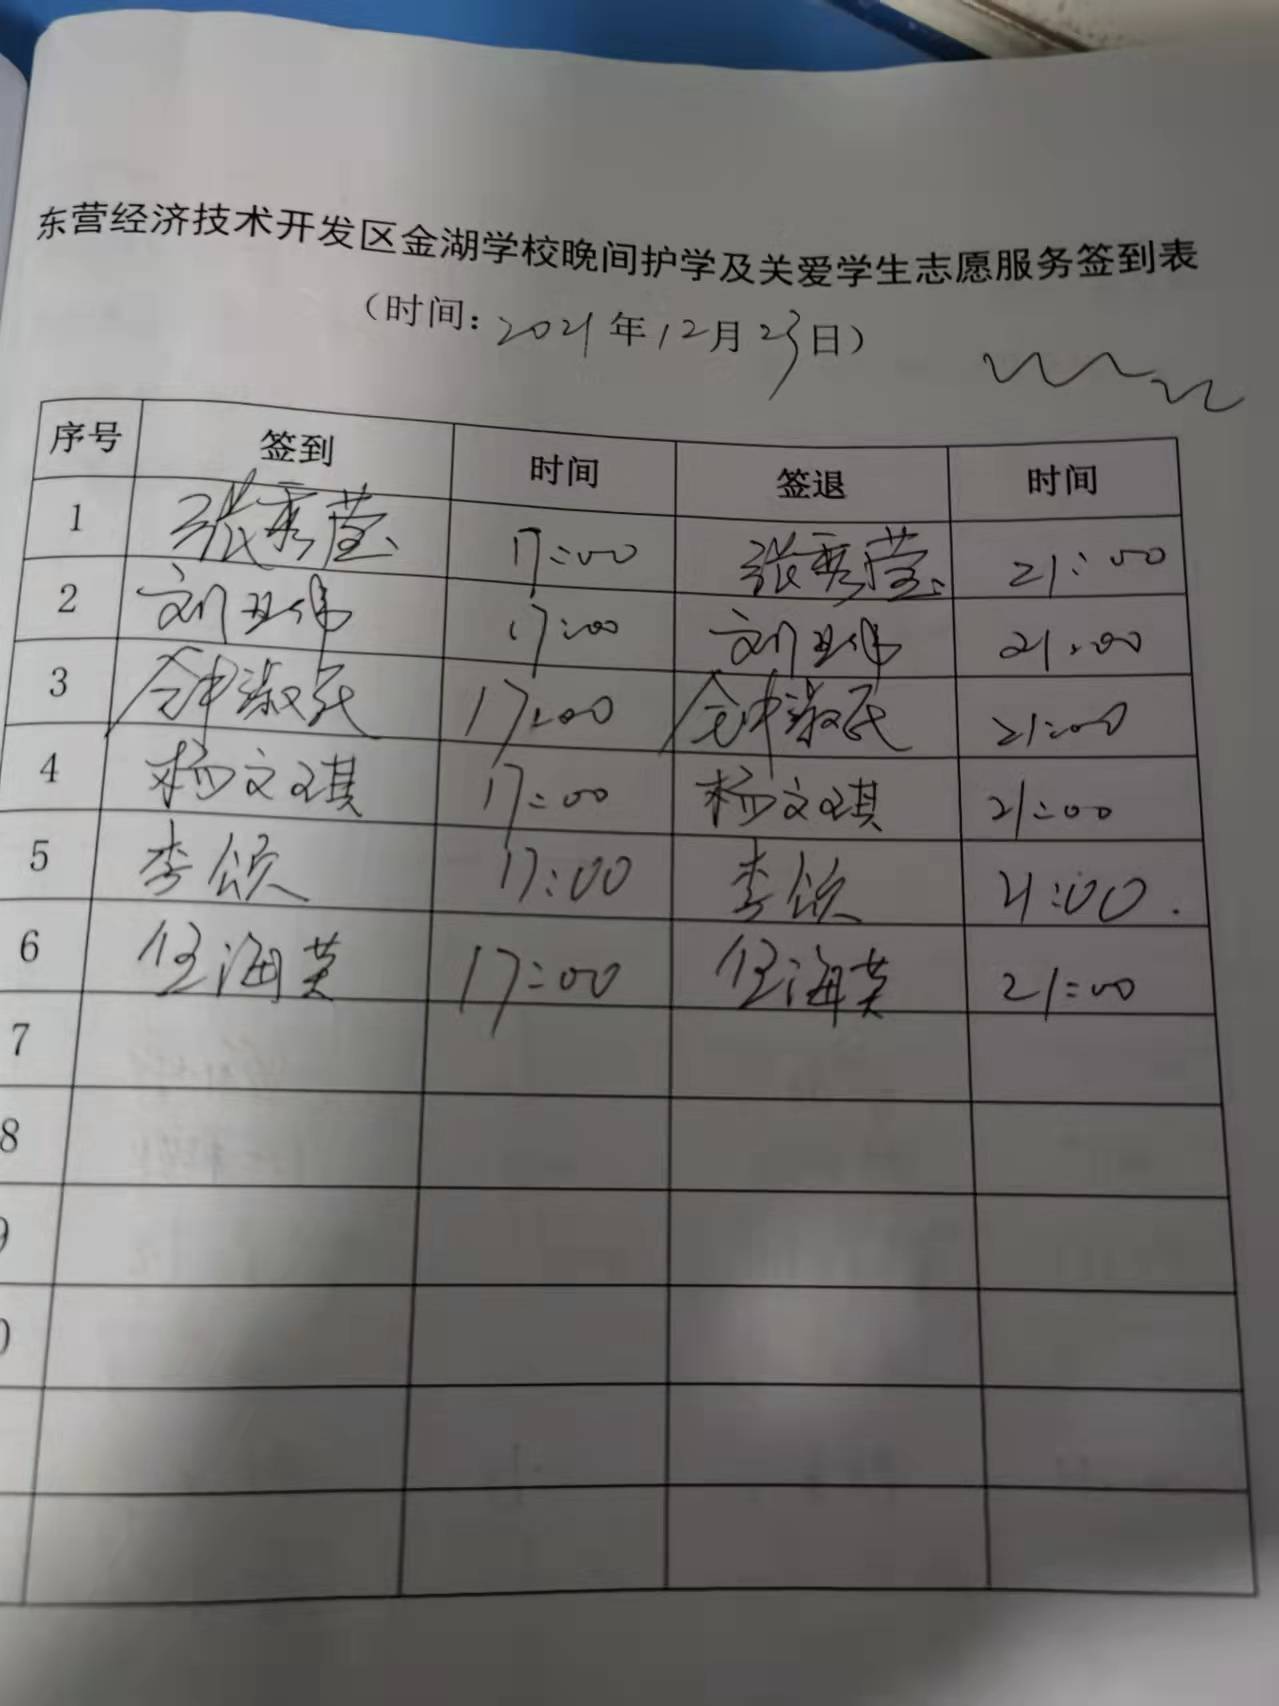 东营经济技术开发区金湖学校晚间护学及关爱学生志愿服务签到表
(时间: 2021年12月23日)
序号 签到 时间 签退 时间
1 张秀莹 17:00 张秀莹 21:00
2 刘卫伟 17:00 刘卫伟 21:00
3 仝中淑民 17:00 仝中淑民 21:00
4 杨文琪 17:00 杨文琪 21:00
5 李颂 17:00 李颂 21:00
6 任海英 17:00 任海英 21:00
7
8